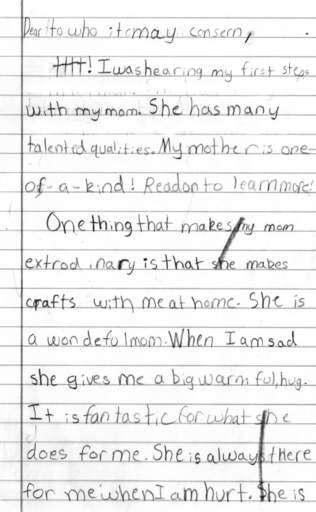 Dear to who it may consern,
! I was hearing my first steps
with my mom. She has many
talented qualities. My mother is one-
of-a-kind! Read on to learn more!
One thing that makes my mom
extrod inary is that she makes
crafts with me at home. She is
a wondeful mom. When I am sad
she gives me a big warm ful, hug.
It is fantastic for what she
does for me. She is always there
for me when I am hurt. She is